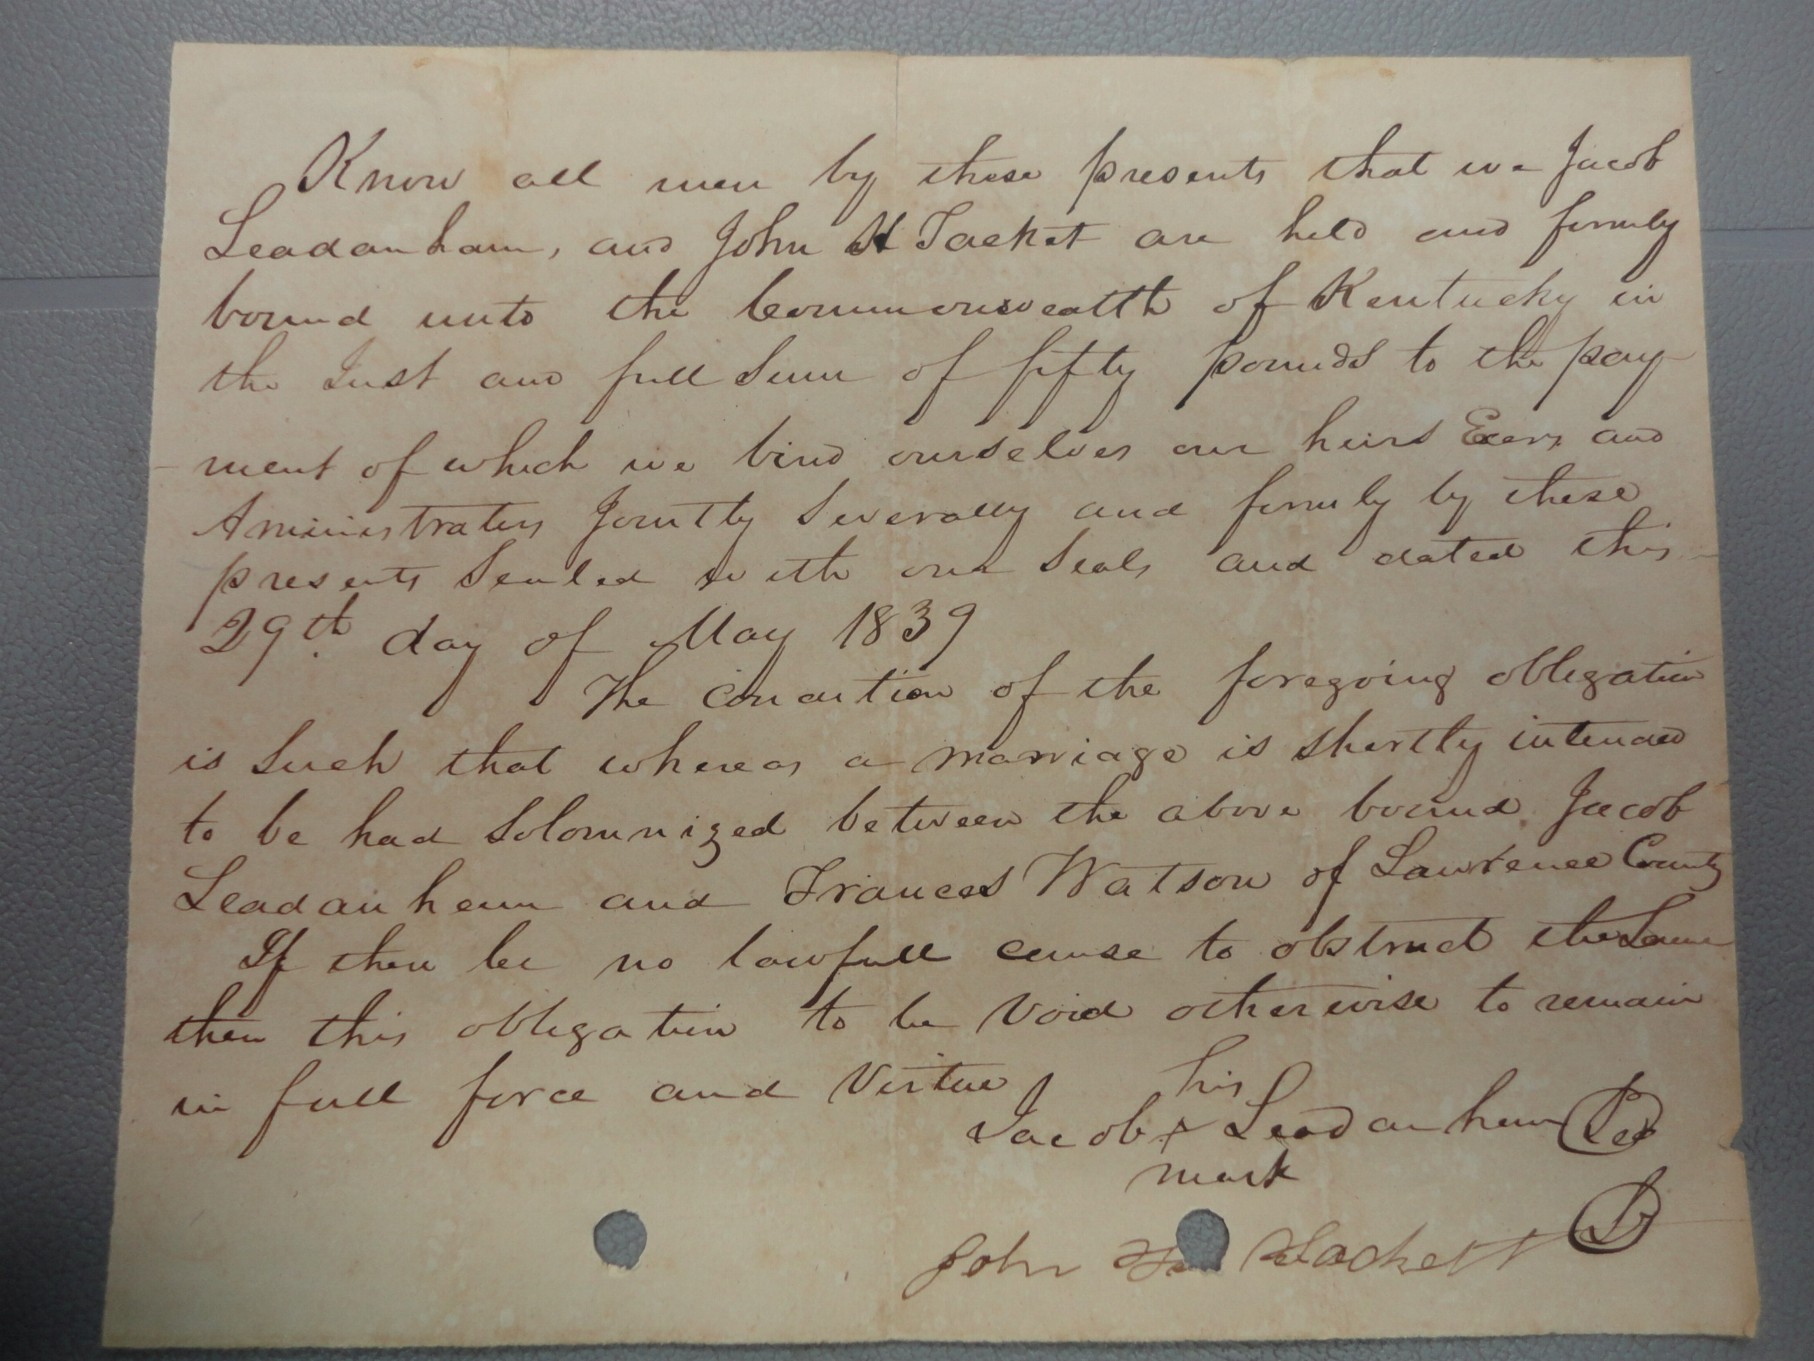 Know all men by these presents that we Jacob
Leadanham, and John H Tacket are held and firmly
bound unto the Commonwealth of Kentucky in
the Just and full Sum of fifty pounds to the pay
ment of which we bind ourselves our heirs Exers and
Aministraters Jointly Severally and firmly by these
presents Sealed with our Seals and dated this
29th day of May 1839
The Condition of the foregoing obligation
is Such that whereas a marriage is shortly intended
to be had Solomnized between the above bound Jacob
Leadanham and Frances Watson of Lawrence County
If their be no lawfull cause to obstruct the Same
then this obligation to be Void otherwise to remain
in full force and Virtue
his
Jacob x Leadanham
mark
John Tackett